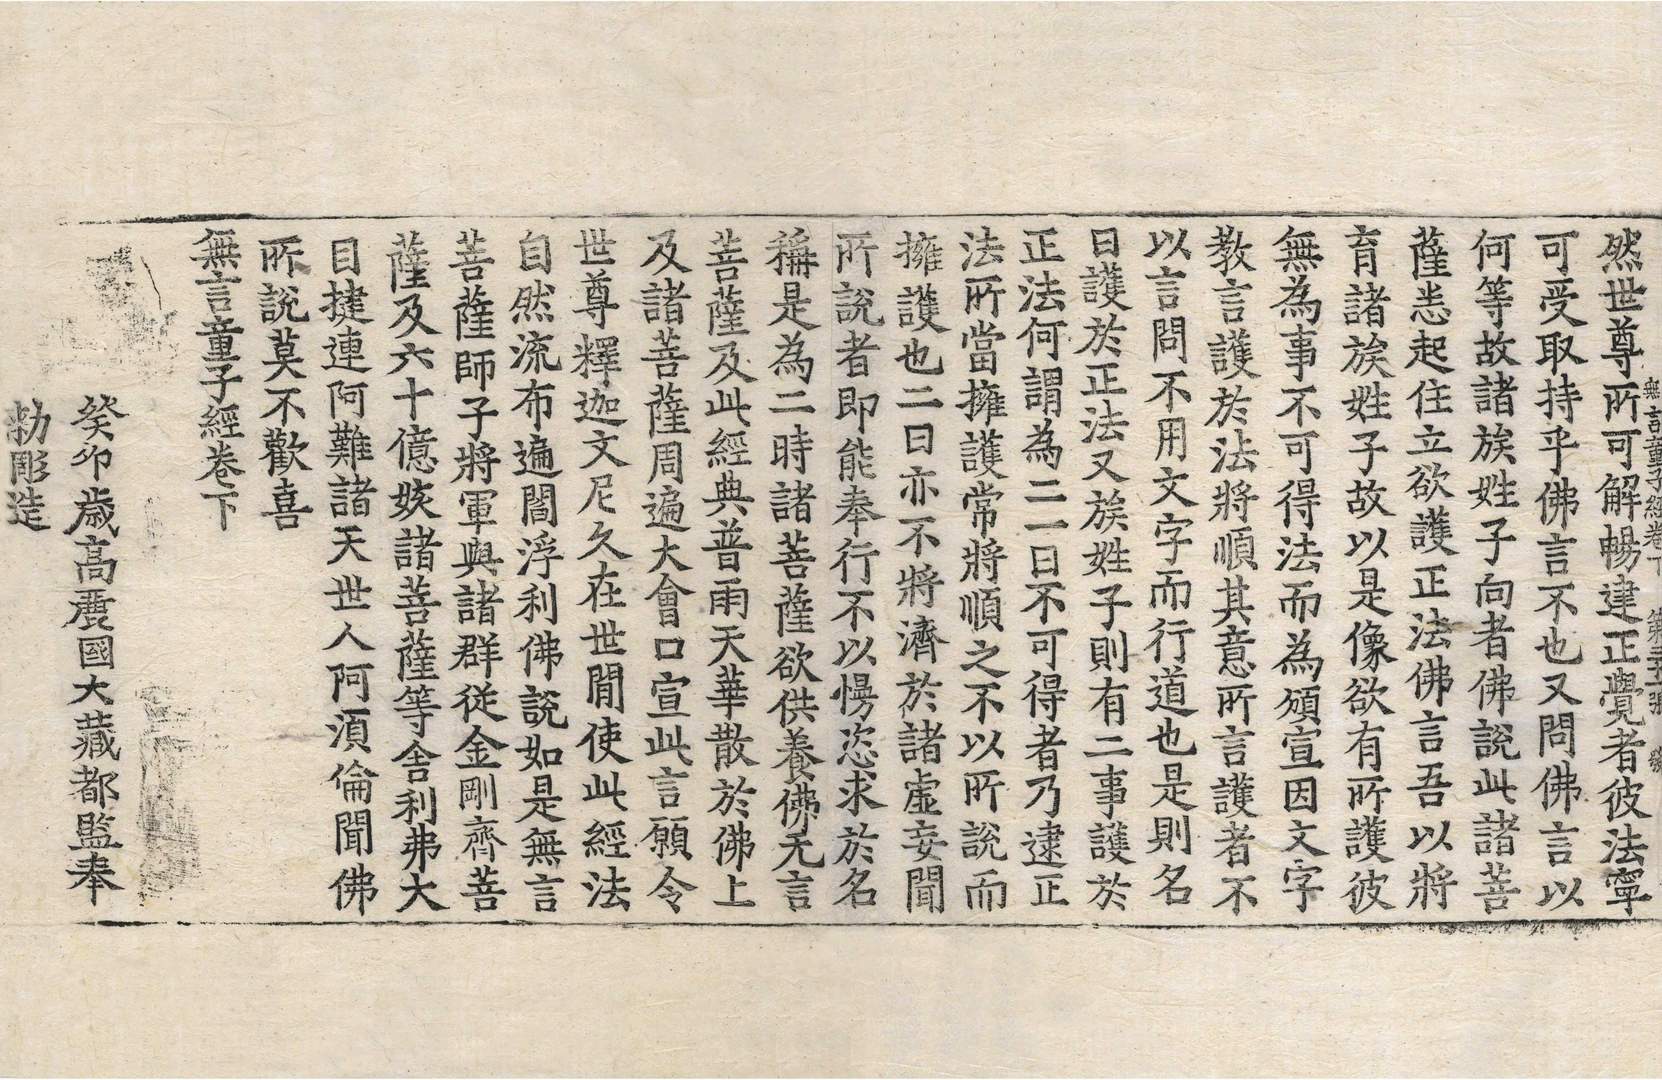 無言童子經卷下 第二十五張 號
然世尊所可解暢建正覺者彼法寧
可受取持乎佛言不也又問佛言以
何等故諸族姓子向者佛說此諸菩
薩悉起住立欲護正法佛言吾以將
育諸族姓子故以是像欲有所護彼
無為事不可得法而為頒宣因文字
教言護於法將順其意所言護者不
以言問不用文字而行道也是則名
曰護於正法又族姓子則有二事護於
正法何謂為二一曰不可得者乃逮正
法所當擁護常將順之不以所說而
擁護也二曰亦不將濟於諸虛妄聞
所說者即能奉行不以慢恣求於名
稱是為二時諸菩薩欲供養佛无言
菩薩及此經典普雨天華散於佛上
及諸菩薩周遍大會口宣此言願令
世尊釋迦文尼久在世間使此經法
自然流布遍閻浮利佛說如是無言
菩薩師子將軍與諸群從金剛齊菩
薩及六十億姟諸菩薩等舍利弗大
目揵連阿難諸天世人阿須倫聞佛
所說莫不歡喜
無言童子經卷下
癸卯歲高麗國大藏都監奉
勑彫造